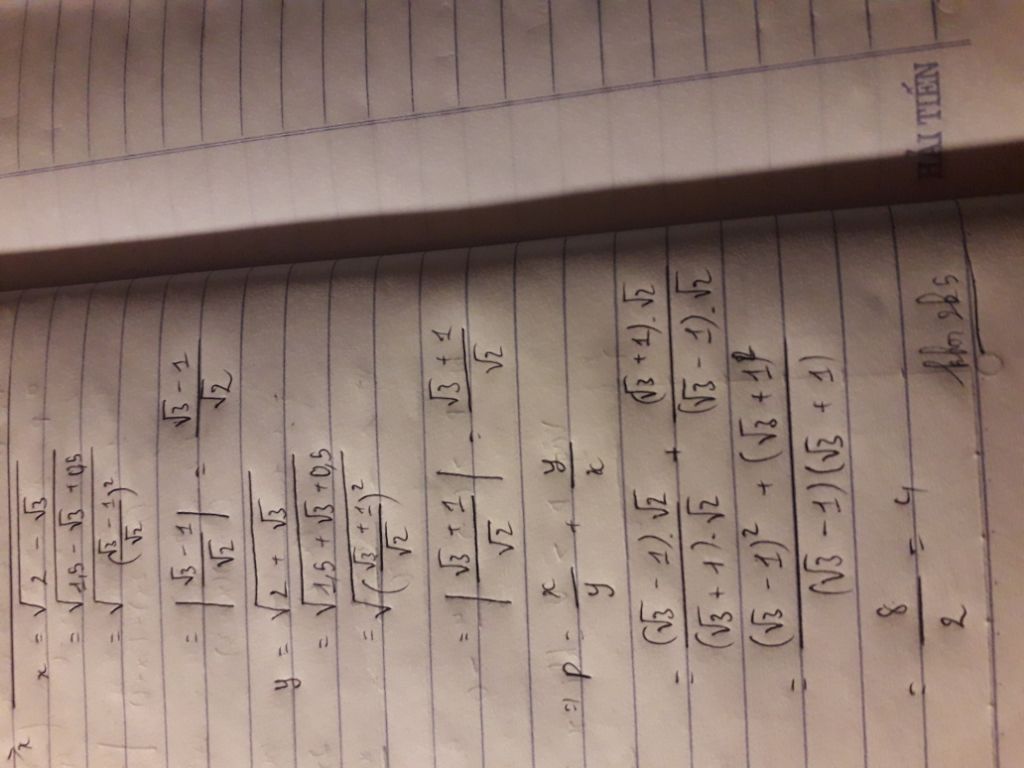 x = √(2 - √3)
= √(1,5 - √3 + 0,5)
= √((√3 - 1)/√2)²
= |(√3 - 1)/√2| = (√3 - 1)/√2
y = √(2 + √3)
= √(1,5 + √3 + 0,5)
= √((√3 + 1)/√2)²
= |(√3 + 1)/√2| = (√3 + 1)/√2
=> P = x/y + y/x
= ((√3 - 1).√2)/((√3 + 1).√2) + ((√3 + 1).√2)/((√3 - 1).√2)
= ((√3 - 1)² + (√3 + 1)²)/((√3 - 1)(√3 + 1))
= 8/2 = 4
HẢI TIẾN